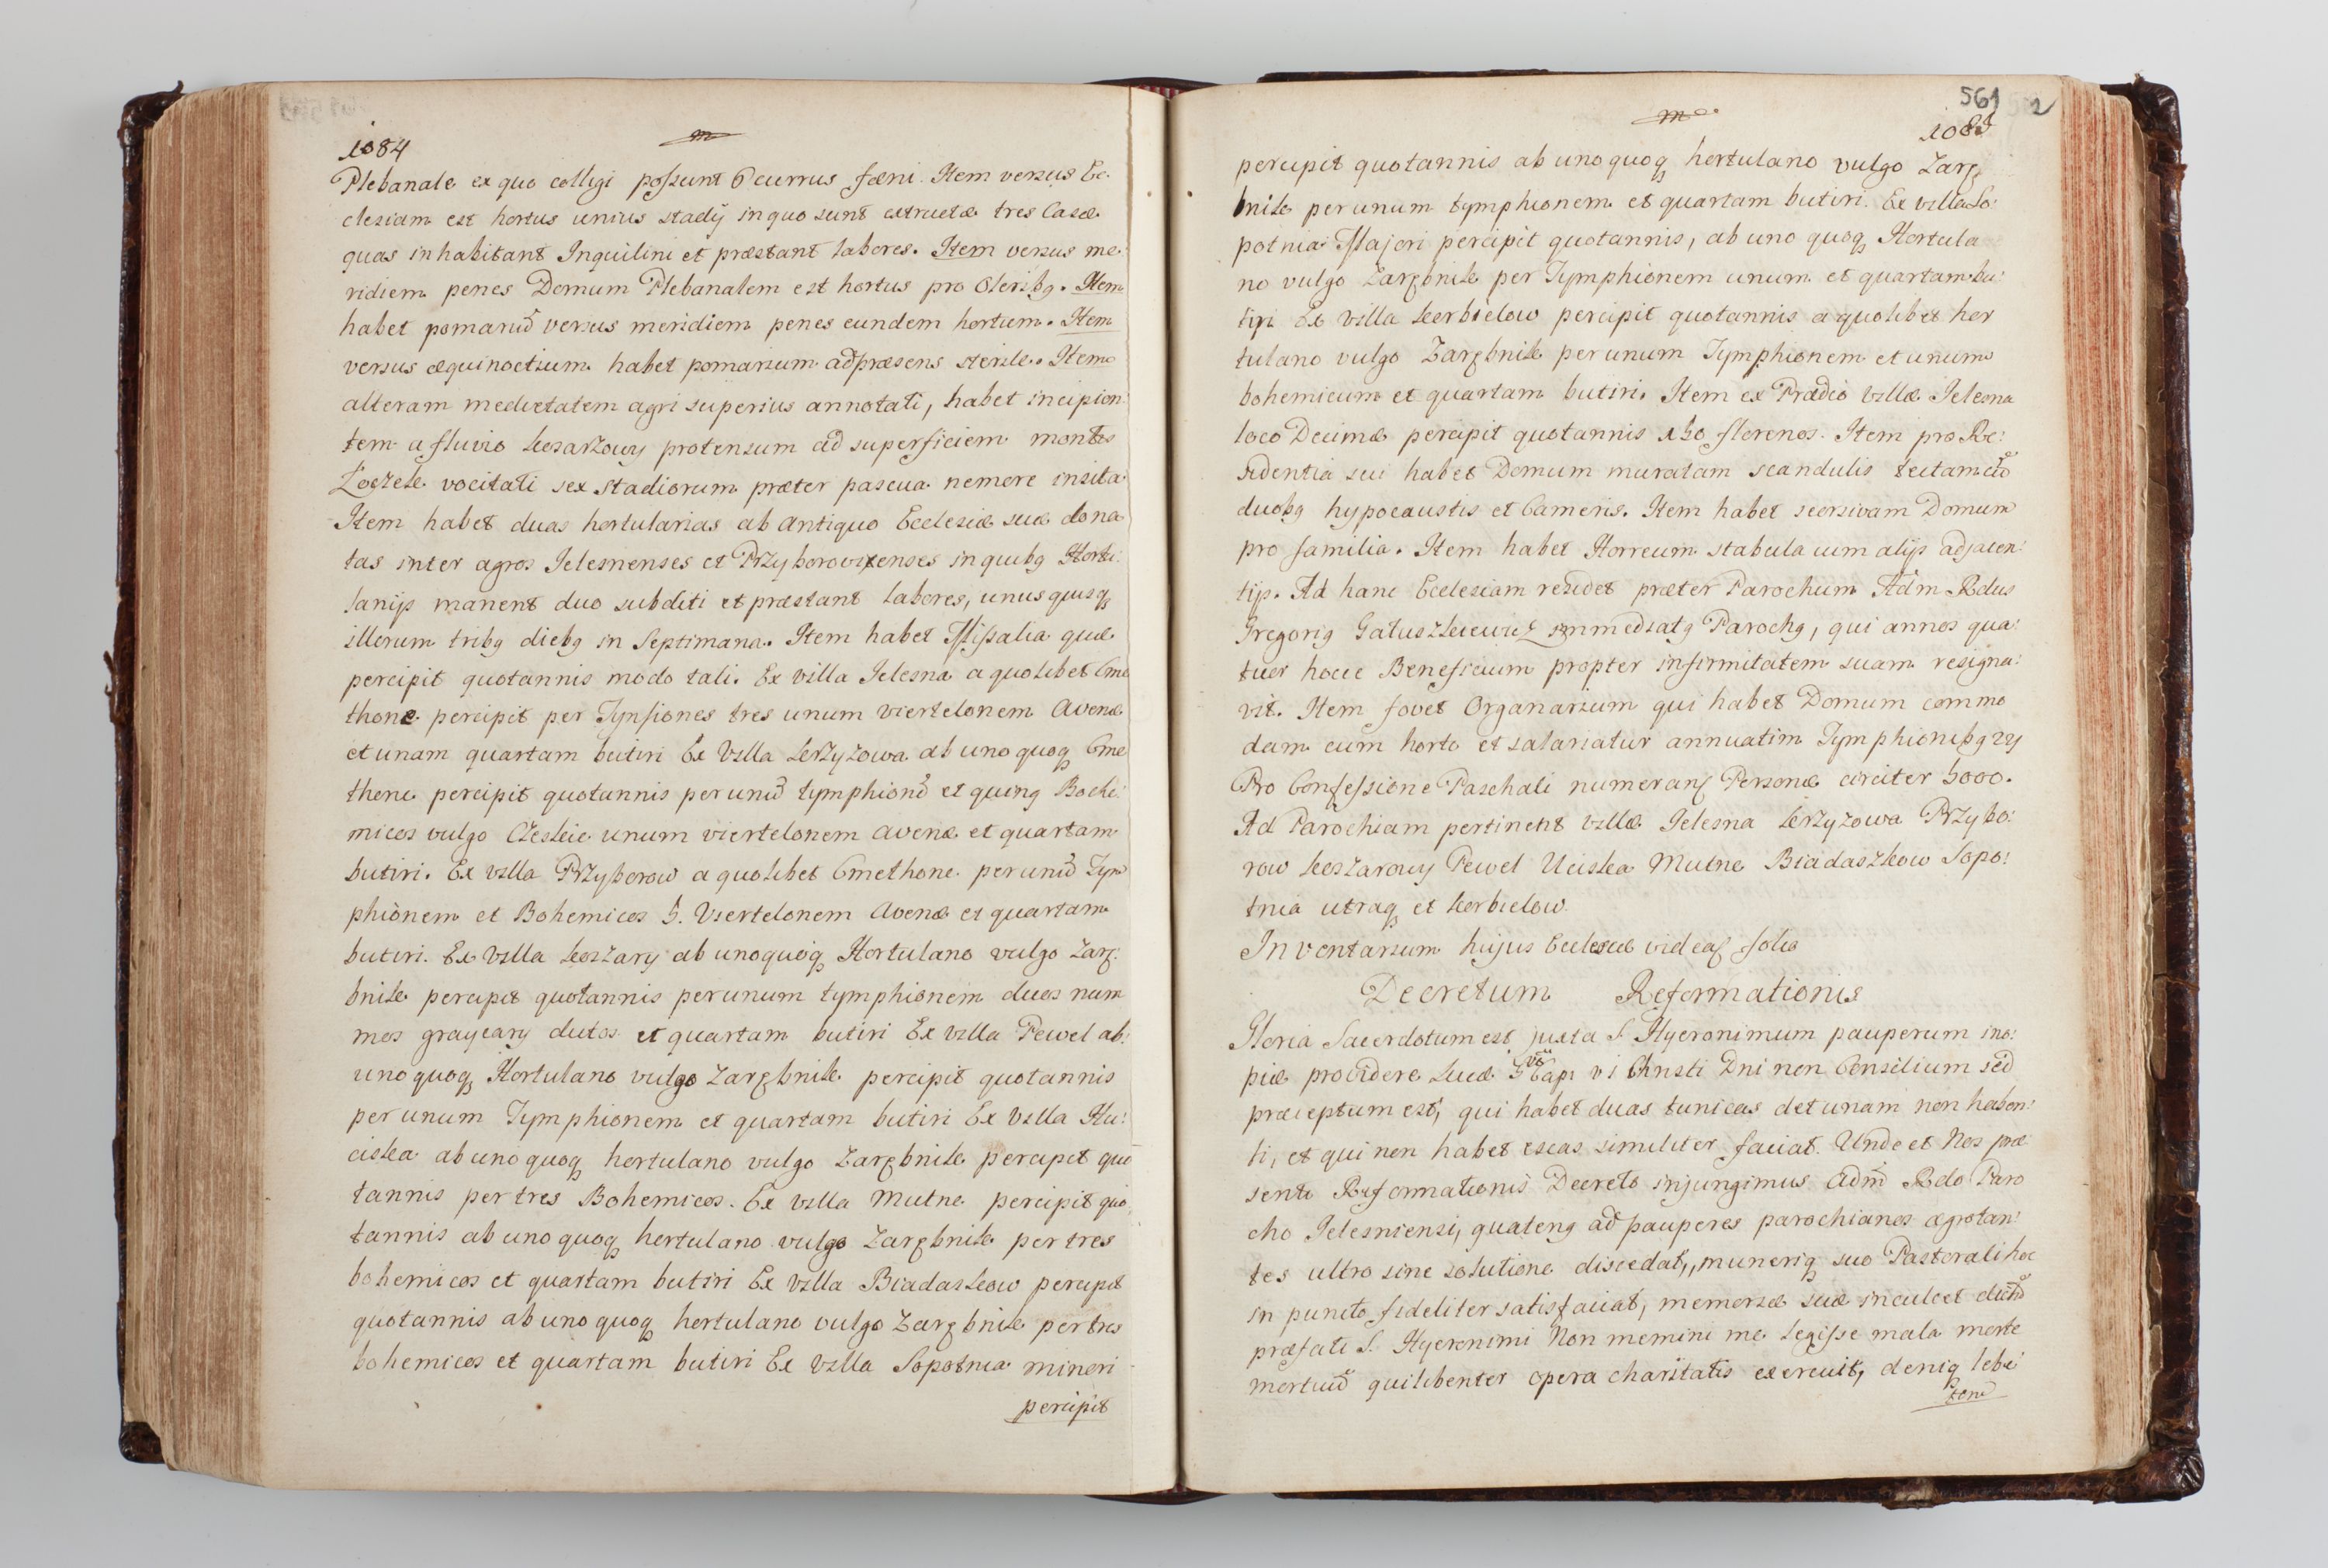 1084
m
Plebanale ex quo colligi possunt 6 currus fæni. Item versus Ec:
clesiam est hortus unius stadij in quo sunt extructæ tres Casæ
quas inhabitant Inquilini et præstant labores. Item versus me:
ridiem penes Domum Plebanalem est hortus pro Oleribq. Item
habet pomariū versus meridiem penes eundem hortum. Item
versus æquinoctium habet pomarium ad præsens sterile. Item
alteram medietatem agri superius annotati, habet incipien:
tem a fluvio Koszarzowy protensum ad superficiem montis
vocitati sex stadiorum præter pascua nemore insita.
Item habet duas hortularias ab antiquo Ecclesiæ suæ dona
tas inter agros Jelesnenses et Przyborovienses in quibq Hortu:
lanijs manent duo subditi et præstant labores, unus quisq
illorum tribq diebq in Septimana. Item habet Missalia quæ
percipit quotannis modo tali. Ex villa Jelesna a quolibet Cme
thone percipit per Tynfiones tres unum viertelonem Avenæ
et unam quartam butiri Ex Villa Krzyzowa ab uno quoq Cme
thone percipit quotannis per unū tymphionē et quinq Bohe:
micos vulgo Czeskie unum viertelonem avenæ et quartam
butiri. Ex villa Przyborow a quolibet Cmethone per unū Tym
phionem et Bohemicos 5. Viertelonem Avenæ et quartam
butiri. Ex Villa Koszary ab unoquoq Hortulano vulgo Zarę:
bnik percipit quotannis per unum tymphionem duos num
mos graycary dutos et quartam butiri Ex villa Pewel ab:
uno quoq Hortulano vulgo Zarębnik percipit quotannis
per unum Tymphionem et quartam butiri Ex Villa Hu:
ciska ab uno quoq hortulano vulgo Zarębnik percipit quo
tannis per tres Bohemicos. Ex villa Mutne percipit quo
tannis ab uno quoq hortulano vulgo Zarębnik per tres
bohemicos et quartam butiri Ex villa Biadaskow percipit
quotannis ab uno quoq hortulano vulgo Zarębnik per tres
bohemicos et quartam butiri Ex villa Sopotnia minori
percipit
561 2
m
1085
percipit quotannis ab uno quoq hortulano vulgo Zarę
bnik per unum tymphionem et quartam butiri. Ex villa So:
potnia Majori percipit quotannis, ab uno quoq Hortula
no vulgo Zarębnik per Tymphionem unum et quartam bu:
tiri Ex villa Korbielow percipit quotannis a quolibet hor
tulano vulgo Zarębnik per unum Tymphionem et unum
bohemicum et quartam butiri. Item ex Prædio villæ Jelesna
loco Decimæ percipit quotannis 150 florenos. Item pro Re:
sidentia sui habet Domum muratam scandulis tectam cū
duobq hypocaustis et Cameris. Item habet seorsivam Domum
pro familia. Item habet Horreum stabula cum alijs adjacen:
tijs. Ad hanc Ecclesiam residet præter Parochum Adm Rdus
Gregoriq immediatq Parochq, qui annos qua:
tuor hocce Beneficium propter infirmitatem suam resigna:
vit. Item fovet Organarium qui habet Domum commo
dam cum horto et salariatur annuatim Tymphionibq 24
Pro Confessione Paschali numeranʒ Personæ circiter 5000.
Ad Parochiam pertinent villæ Jelesna Krzyzowa Przybo:
row Koszarowy Pewel Uciska Mutne Biadaszkow Sopo:
tnia utraq et Korbielow.
Inventarium hujus Ecclesiæ videaʒ folio
Decretum Reformationis
Gloria Sacerdotum est juxta S. Hyeronimum pauperum ino:
piæ providere Lucæ Capi Christi Dni non Consilium sed
præceptum est, qui habet duas tunicas det unam non haben:
ti, et qui non habet escas similiter faciat. Unde et Nos præ
senti Reformationis Decreto injungimus Adm Rdo Paro
cho Jelesniensi, quatenq ad pauperes parochianos ægrotan:
tes ultro sine solutione discedat, muneriq suo Pastorali hoc
in puncto fideliter satisfaciat, memoriæ suæ inculcet dictū
præfati S. Hyeronimi Non memini me legisse mala morte
mortuū qui libenter opera charitatis exercuit, deniq lebe
tem